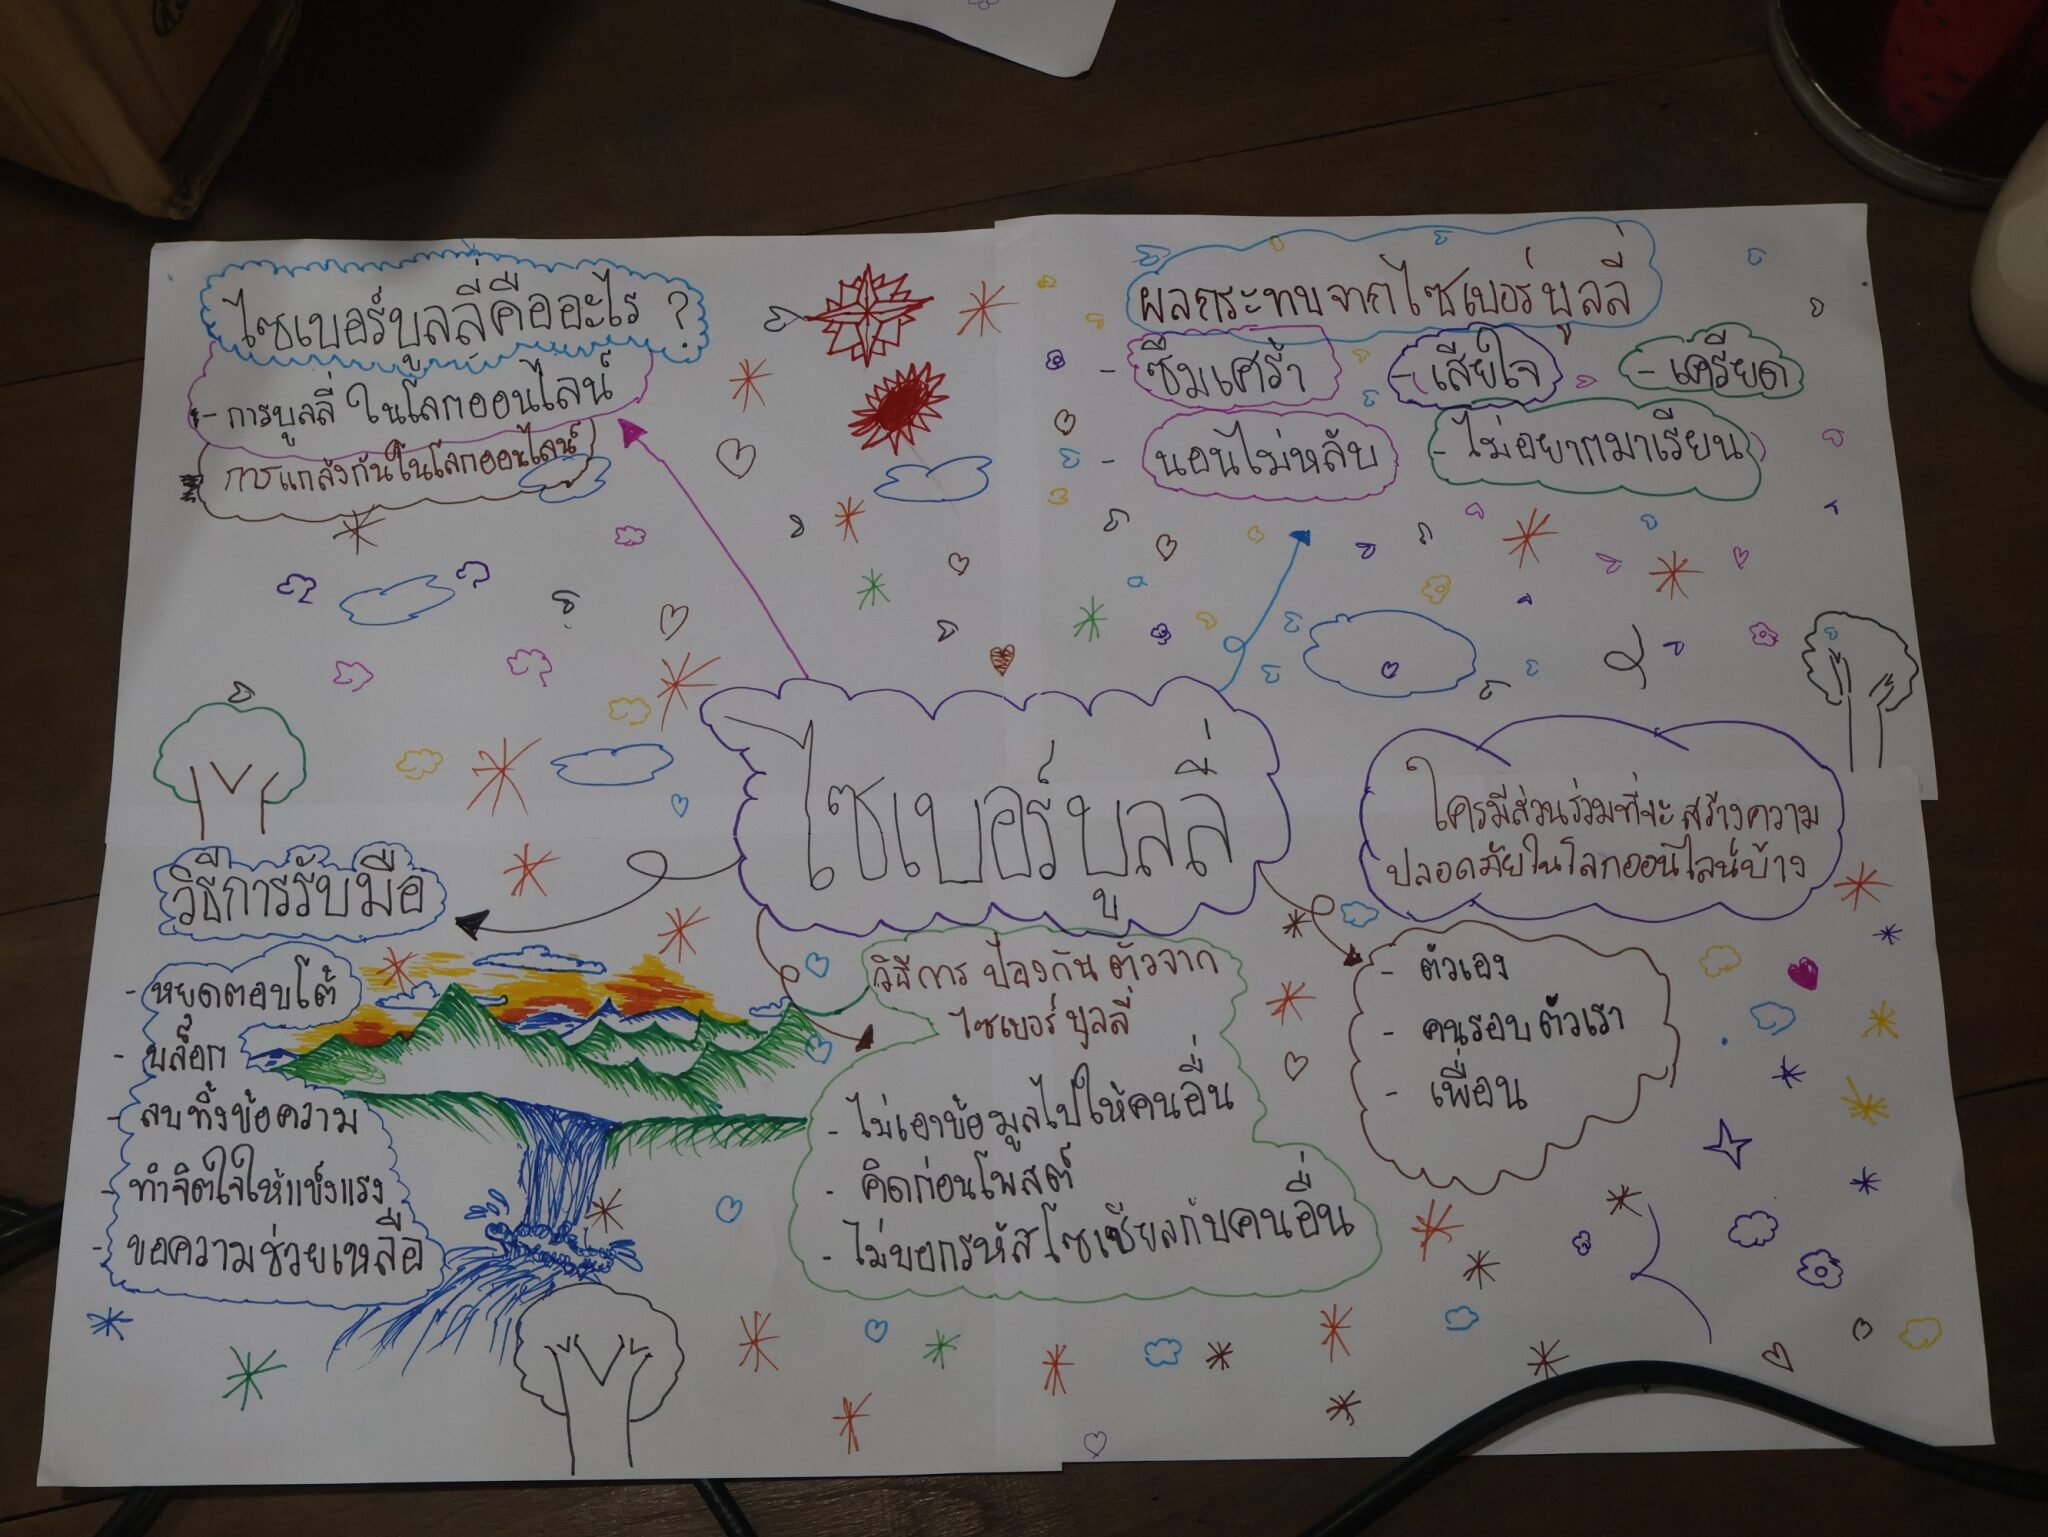 ไซเบอร์บูลลี่คืออะไร ?
- การบูลลี่ ในโลกออนไลน์
การแกล้งกันในโลกออนไลน์
ผลกระทบจากไซเบอร์บูลลี่
- ซึมเศร้า - เสียใจ - เครียด
- นอนไม่หลับ - ไม่อยากมาเรียน
ไซเบอร์บูลลี่
ใครมีส่วนร่วมที่จะสร้างความ
ปลอดภัยในโลกออนไลน์บ้าง
- ตัวเอง
- คนรอบตัวเรา
- เพื่อน
วิธีการรับมือ
- หยุดตอบโต้
- บล็อก
- ลบทิ้งข้อความ
- ทำจิตใจให้แข็งแรง
- ขอความช่วยเหลือ
วิธีการป้องกันตัวจาก
ไซเบอร์บูลลี่
- ไม่เอาข้อมูลไปให้คนอื่น
- คิดก่อนโพสต์
- ไม่บอกรหัสโซเชียลกับคนอื่น